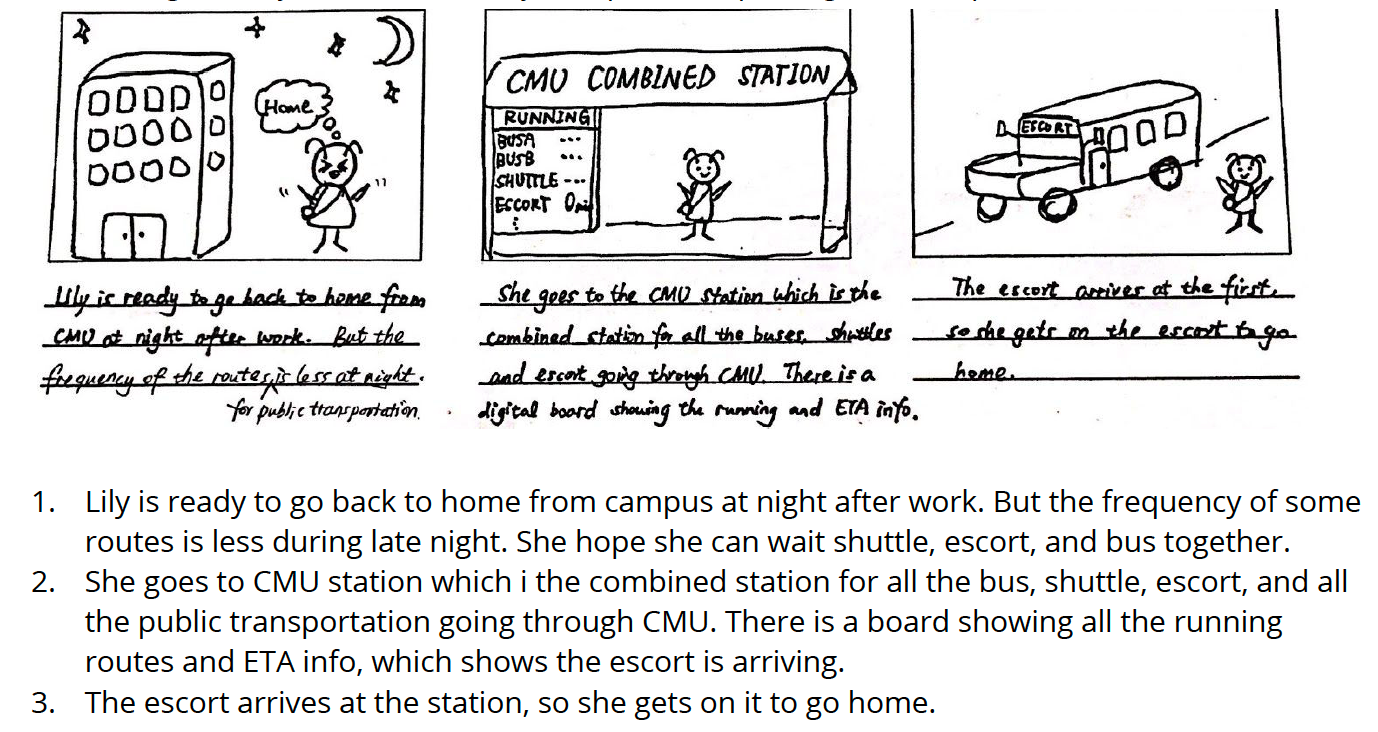 Home
CMU COMBINED STATION
RUNNING
BUSA ---
BUSB ---
SHUTTLE ---
ESCORT 0min
ESCORT
Lily is ready to go back to home from
CMU at night after work. But the
frequency of the routes is less at night.
for public transportation.
She goes to the CMU station which is the
combined station for all the buses, shuttles
and escort going through CMU. There is a
digital board showing the running and ETA info.
The escort arrives at the first,
so she gets on the escort to go
home.
1. Lily is ready to go back to home from campus at night after work. But the frequency of some
routes is less during late night. She hope she can wait shuttle, escort, and bus together.
2. She goes to CMU station which i the combined station for all the bus, shuttle, escort, and all
the public transportation going through CMU. There is a board showing all the running
routes and ETA info, which shows the escort is arriving.
3. The escort arrives at the station, so she gets on it to go home.